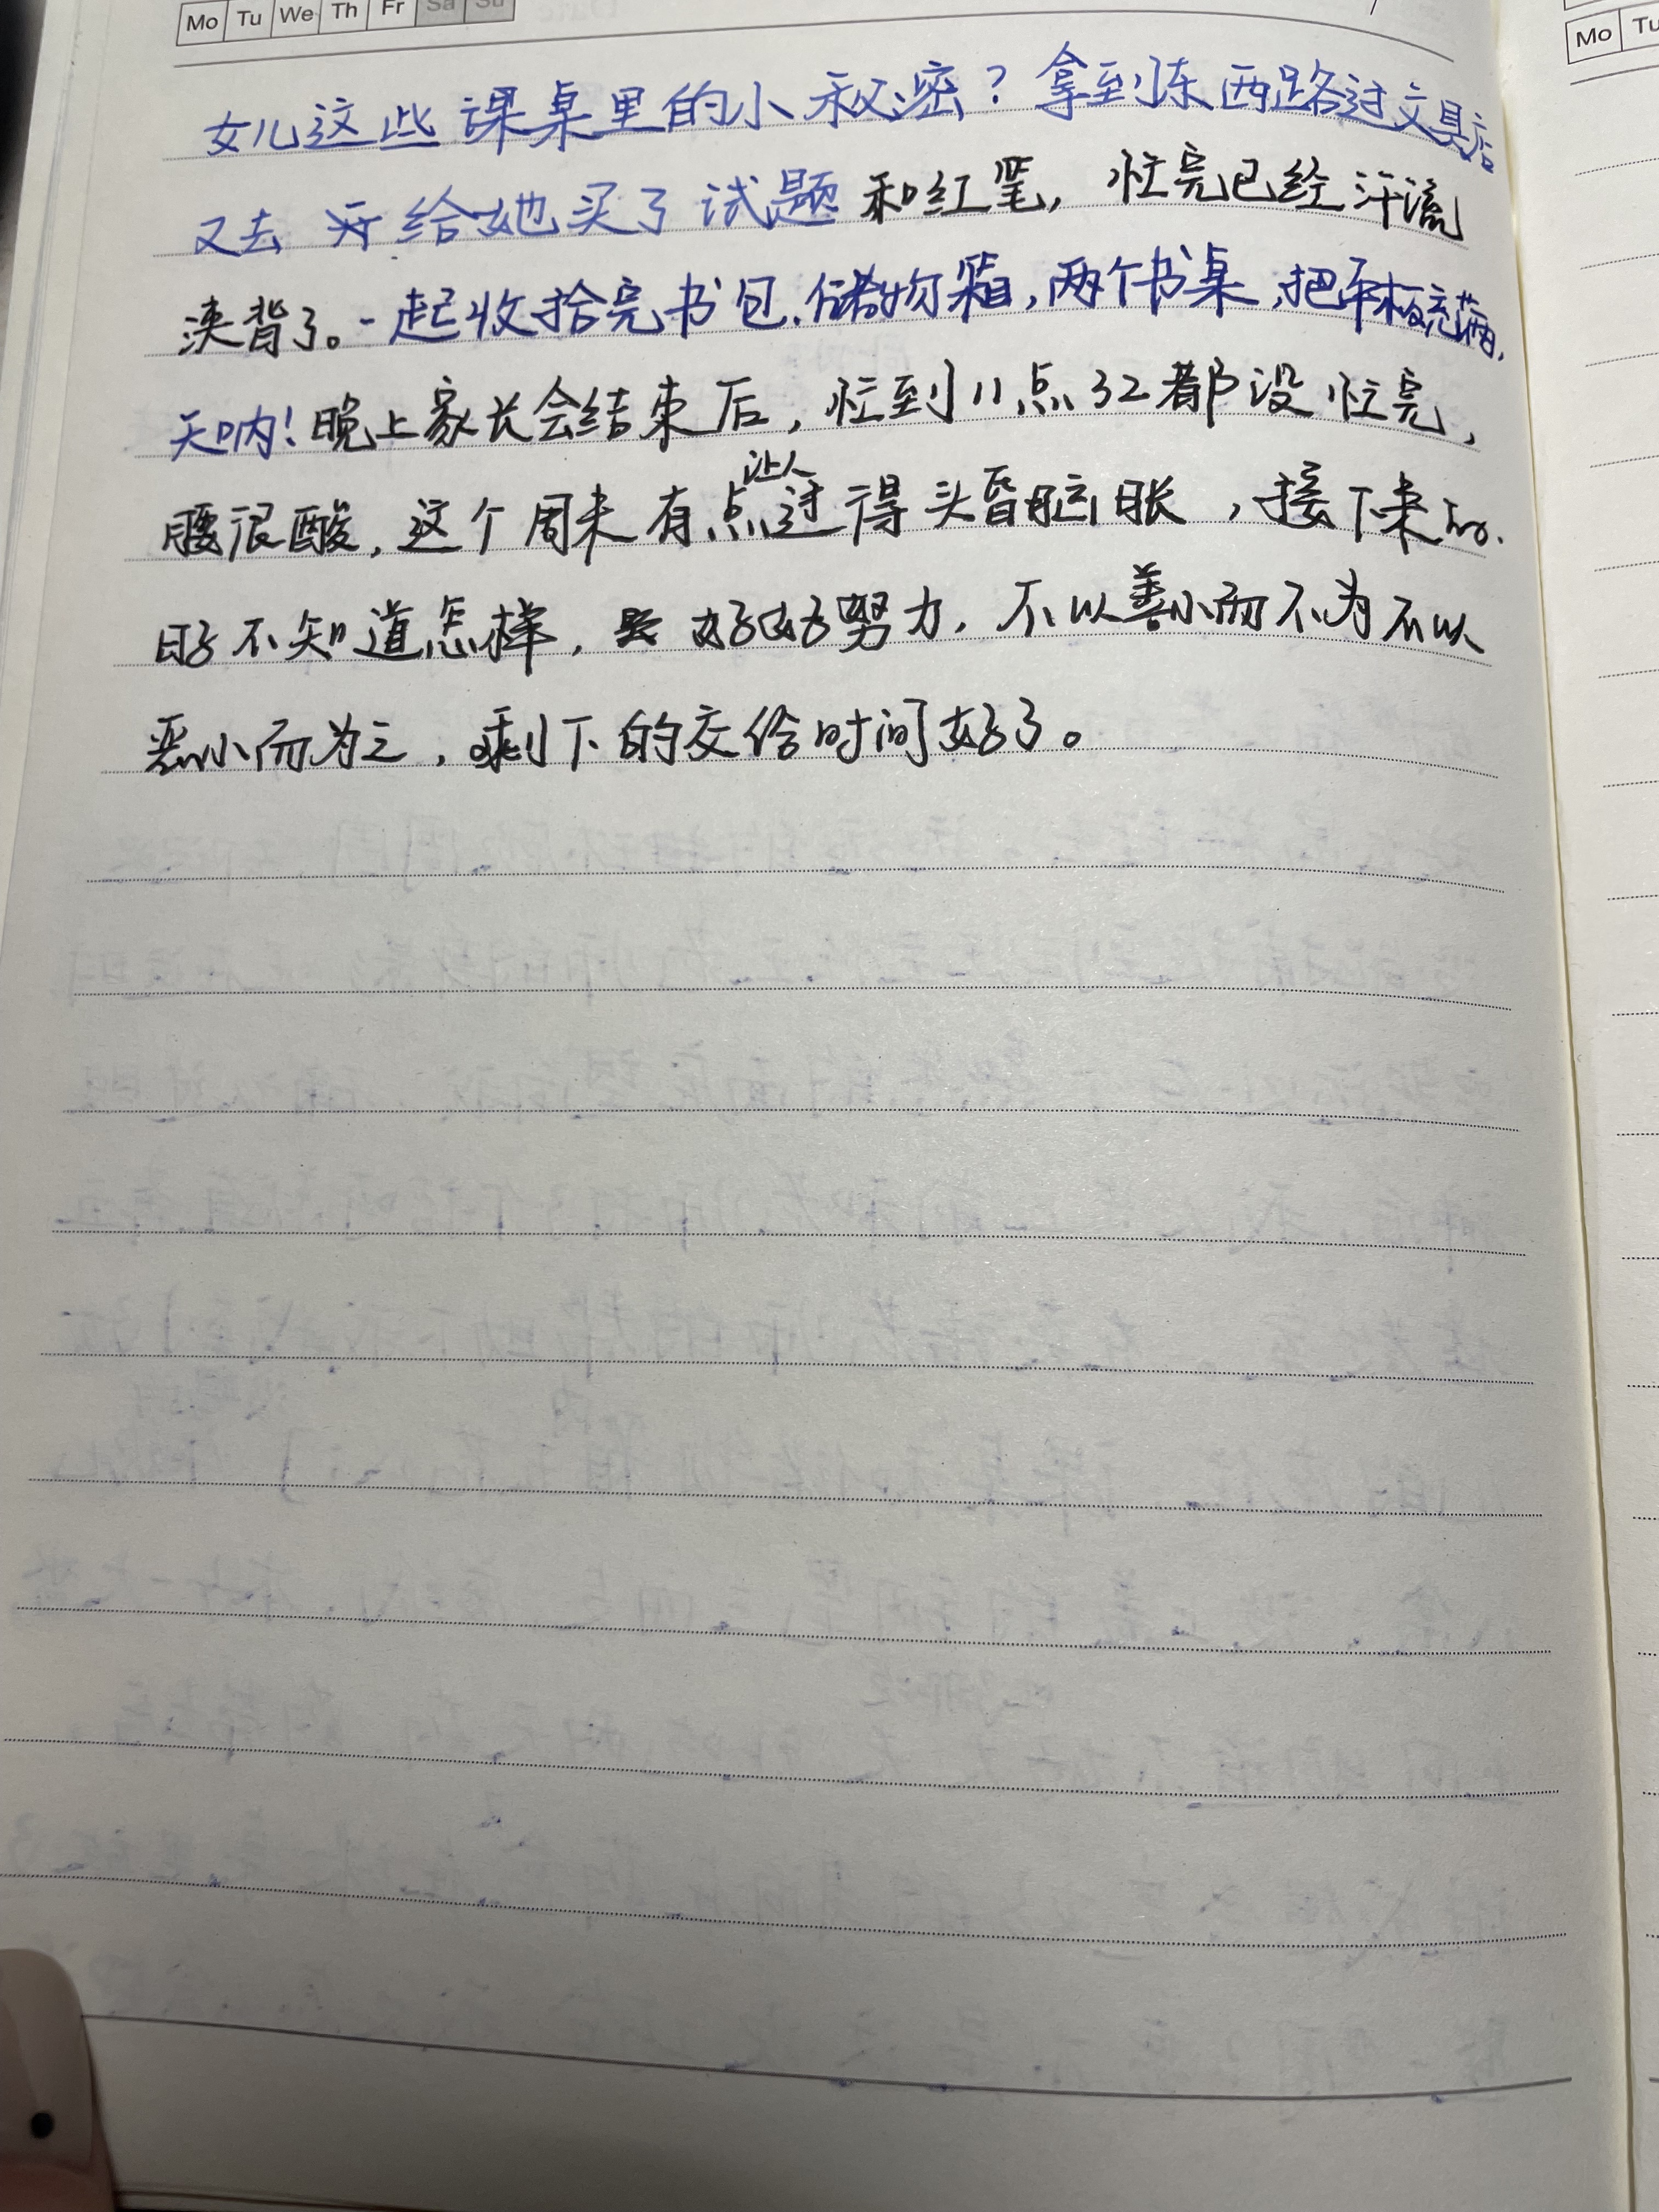 Mo Tu We Th Fr Sa Su
Mo Tu
女儿这些课桌里的小秘密？拿到东西路过文具店
又去 给她买了试题和红笔，忙完已经汗流
浃背了。一起收拾完书包、储物箱，两个书桌，把平板充满，
天呐！晚上家长会结束后，忙到11点32都没忙完，
让人
腰很酸，这个周末有点过得头昏脑胀，接下来的
日子不知道怎样，好好努力，不以善小而不为不以
恶小而为之，剩下的交给时间好了。